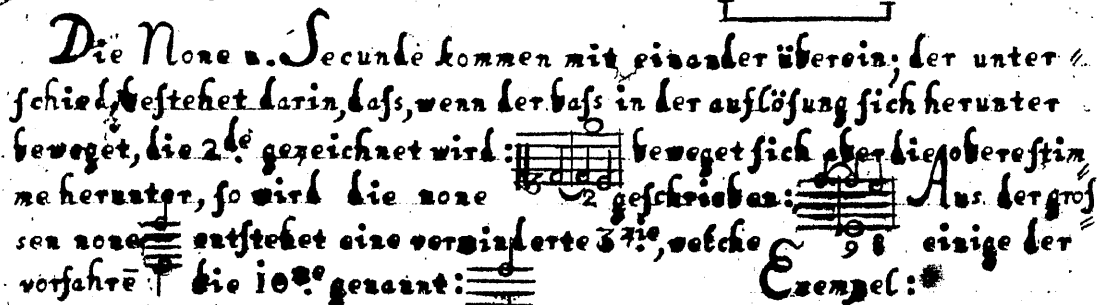 Die None u. Secunde kommen mit einander überein; der unter⸗
schied, bestehet darin, daſs, wenn der baſs in der auflösung sich herunter
beweget, die 2de gezeichnet wird: beweget sich aber die oberestim⸗
me herunter, so wird die none 2 geschrieben: Aus der gros⸗
sen none entstehet eine verminderte 3tie, welche 9 8 einige der
vorfahrē die 10me genannt: Exempel: